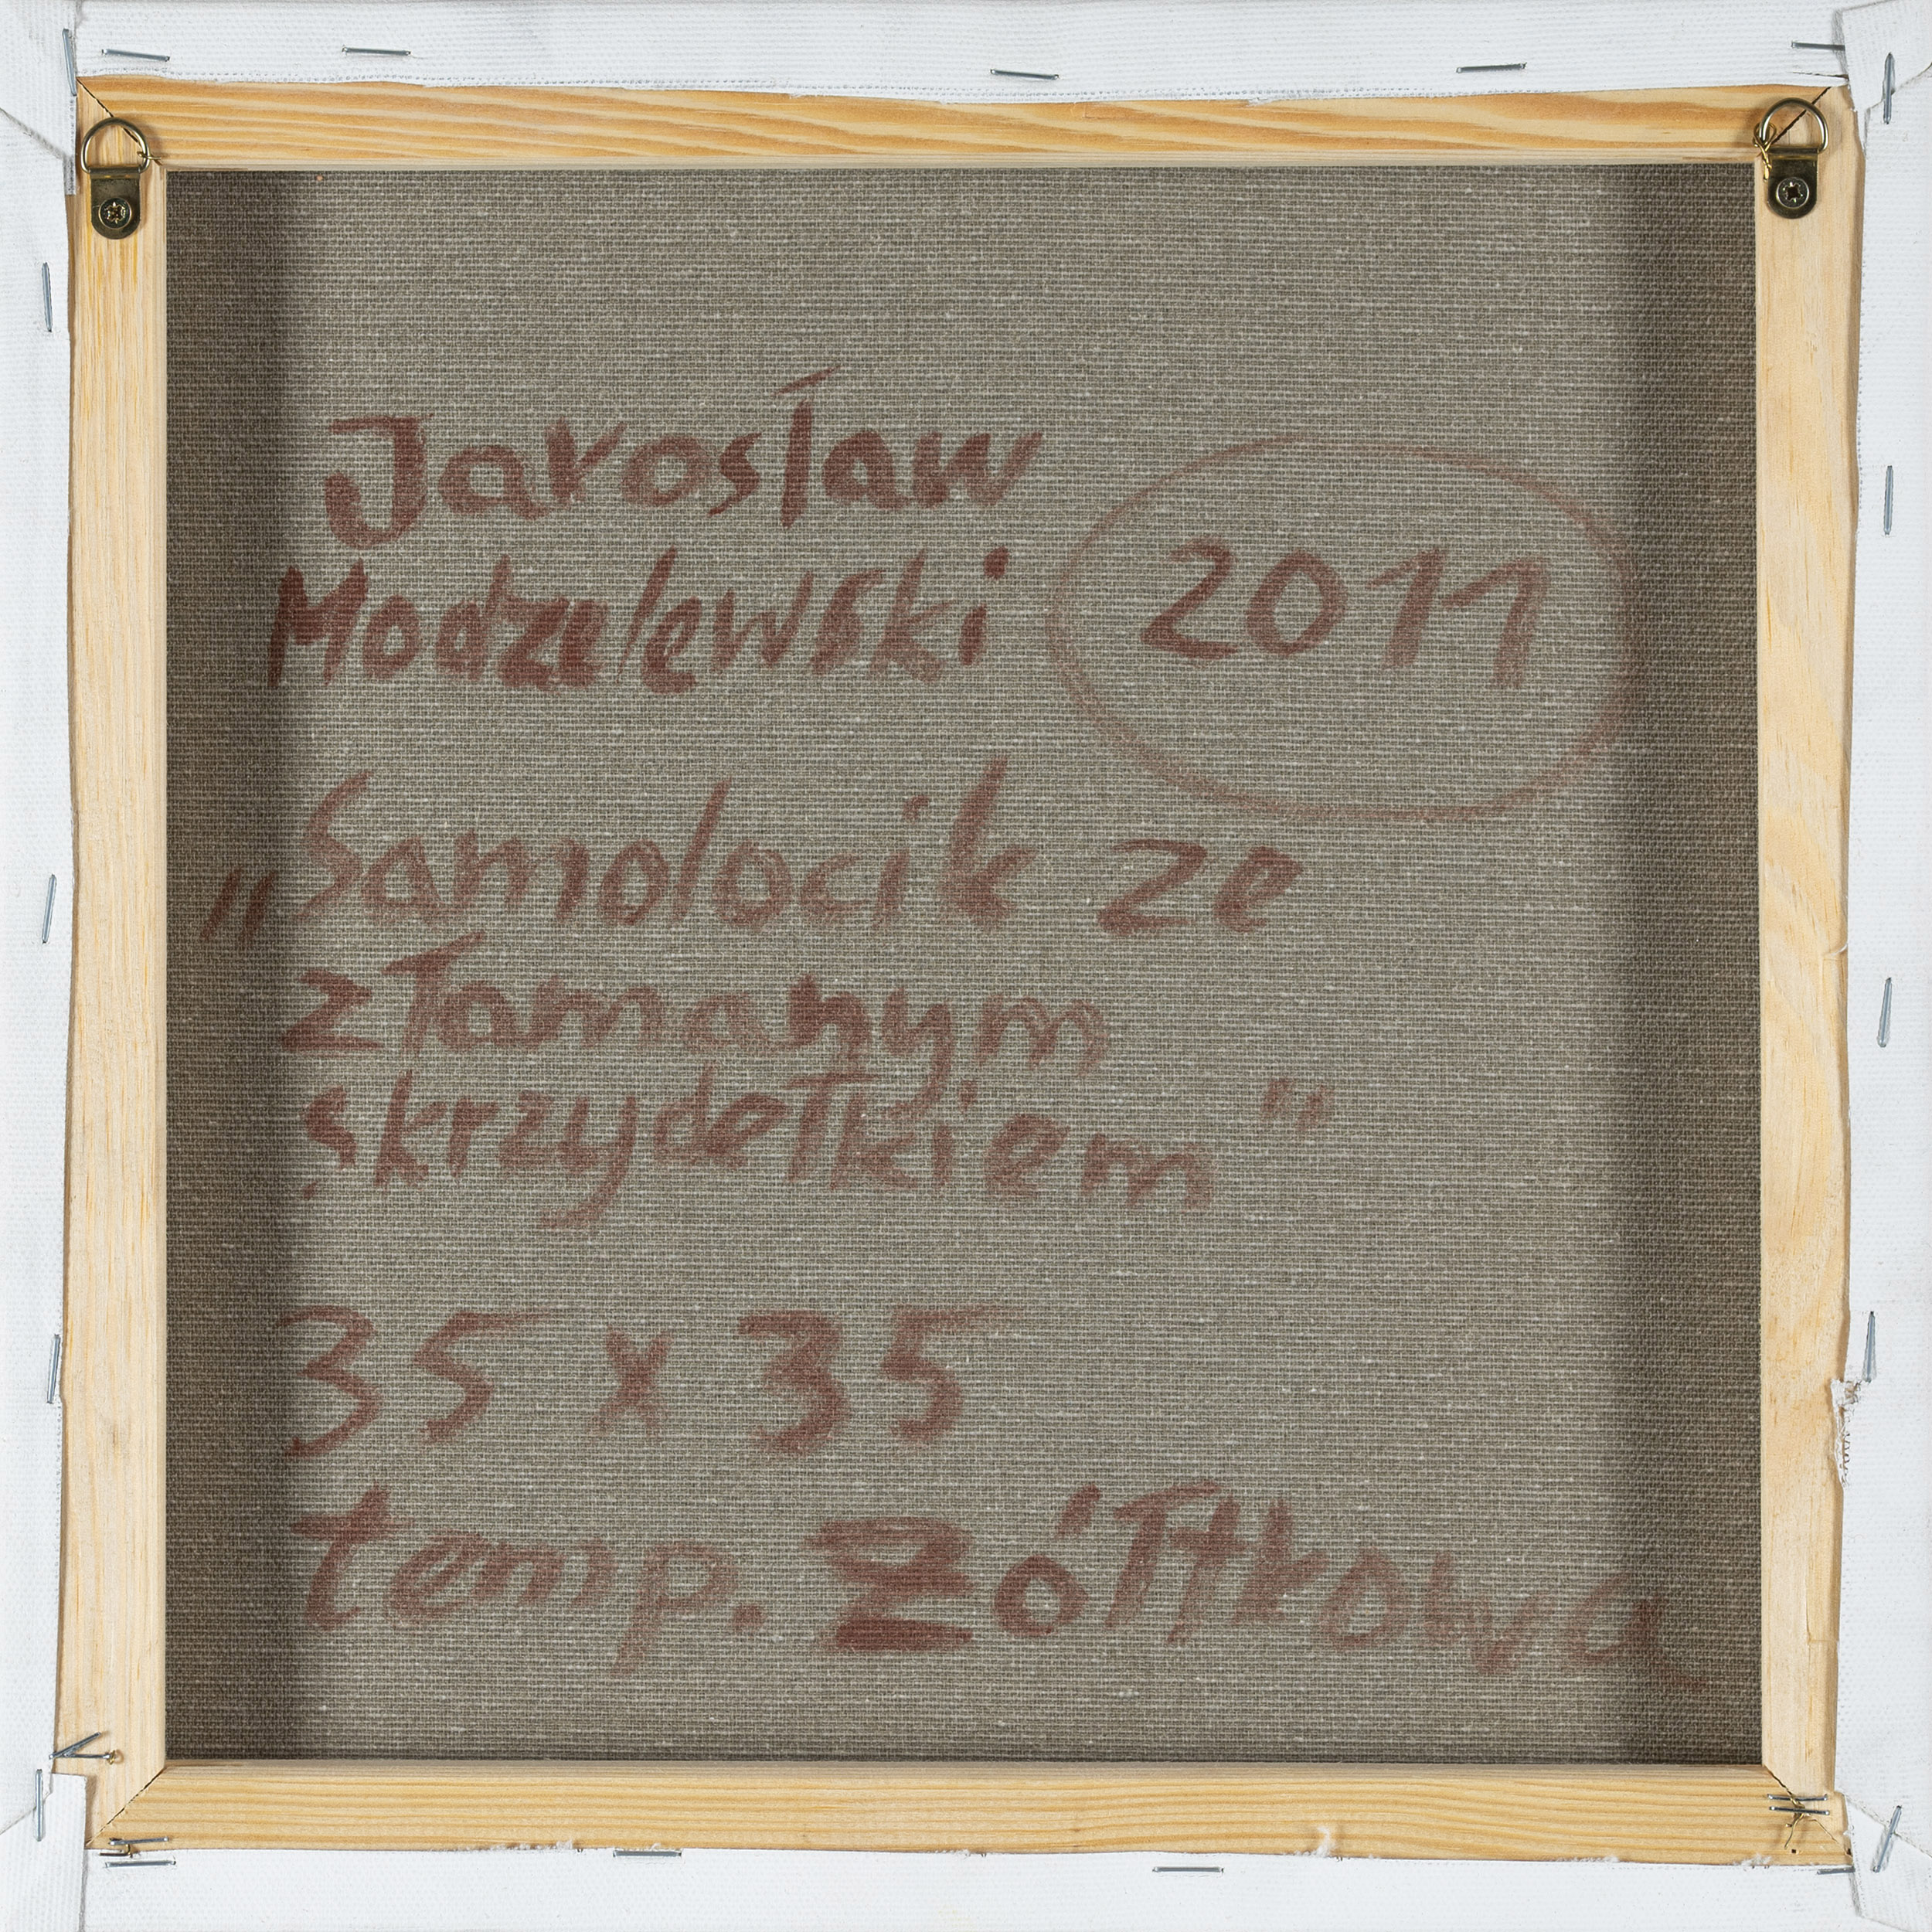 Jarosław
Modzelewski 2011
„Samolocik ze
złamanym
skrzydełkiem"
35 x 35
temp. Żółtkowa